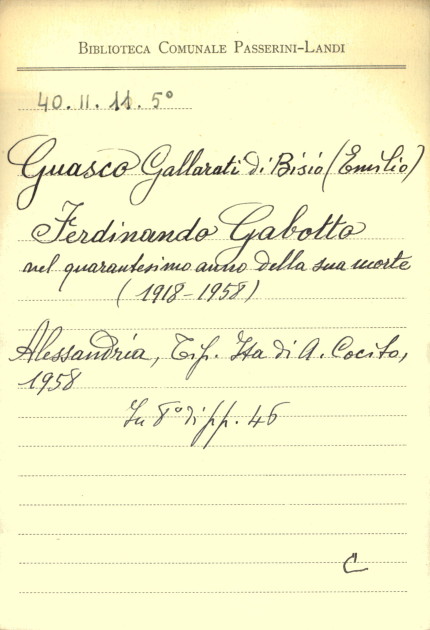 BIBLIOTECA COMUNALE PASSERINI-LANDI
40.II.11.5°
Guasco Gallarati di Bisio (Emilio)
Ferdinando Gabotto
nel quarantesimo anno della sua morte
(1918-1958)
Alessandria, Tip. Ita di A. Cocito,
1958
In 8° di pp. 46
C